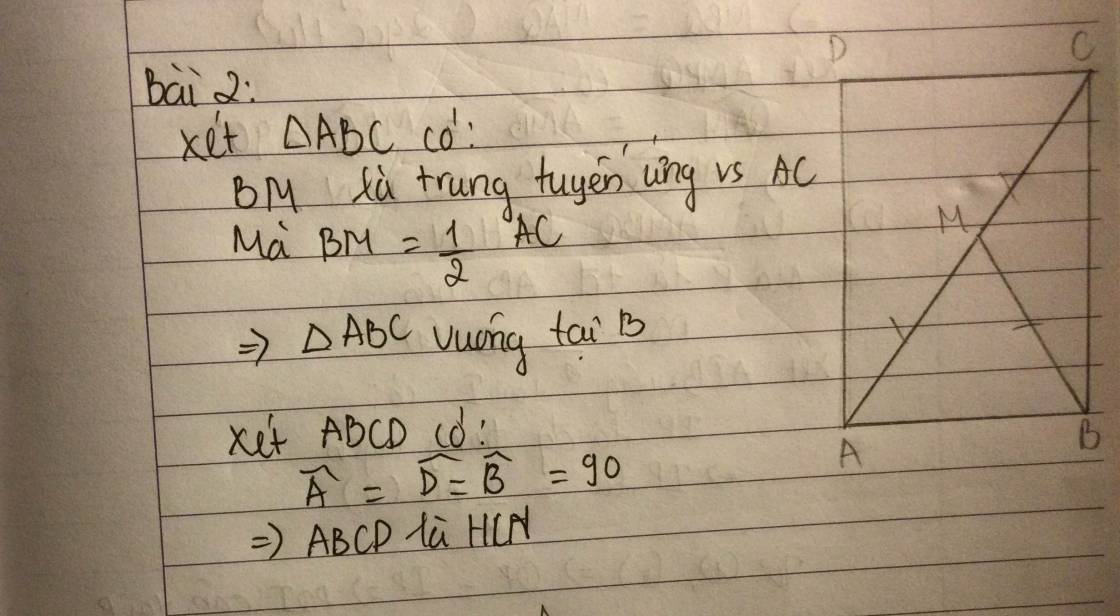 Bài 2:
Xét ΔABC có:
BM là trung tuyến ứng vs AC
Mà BM = 1/2 AC
=> ΔABC vuông tại B
Xét ABCD có:
Â = D̂ = B̂ = 90
=> ABCD là HCN
D
C
M
A
B